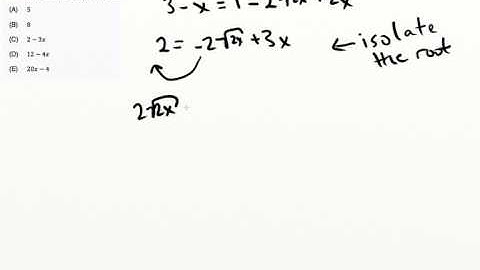 (A) 5
(B) 8
(C) 2 − 3x
(D) 12 − 4x
(E) 20x − 4
3 - x = 1 - 2√2x + 2x
2 = -2√2x + 3x ← isolate
the root
2√2x